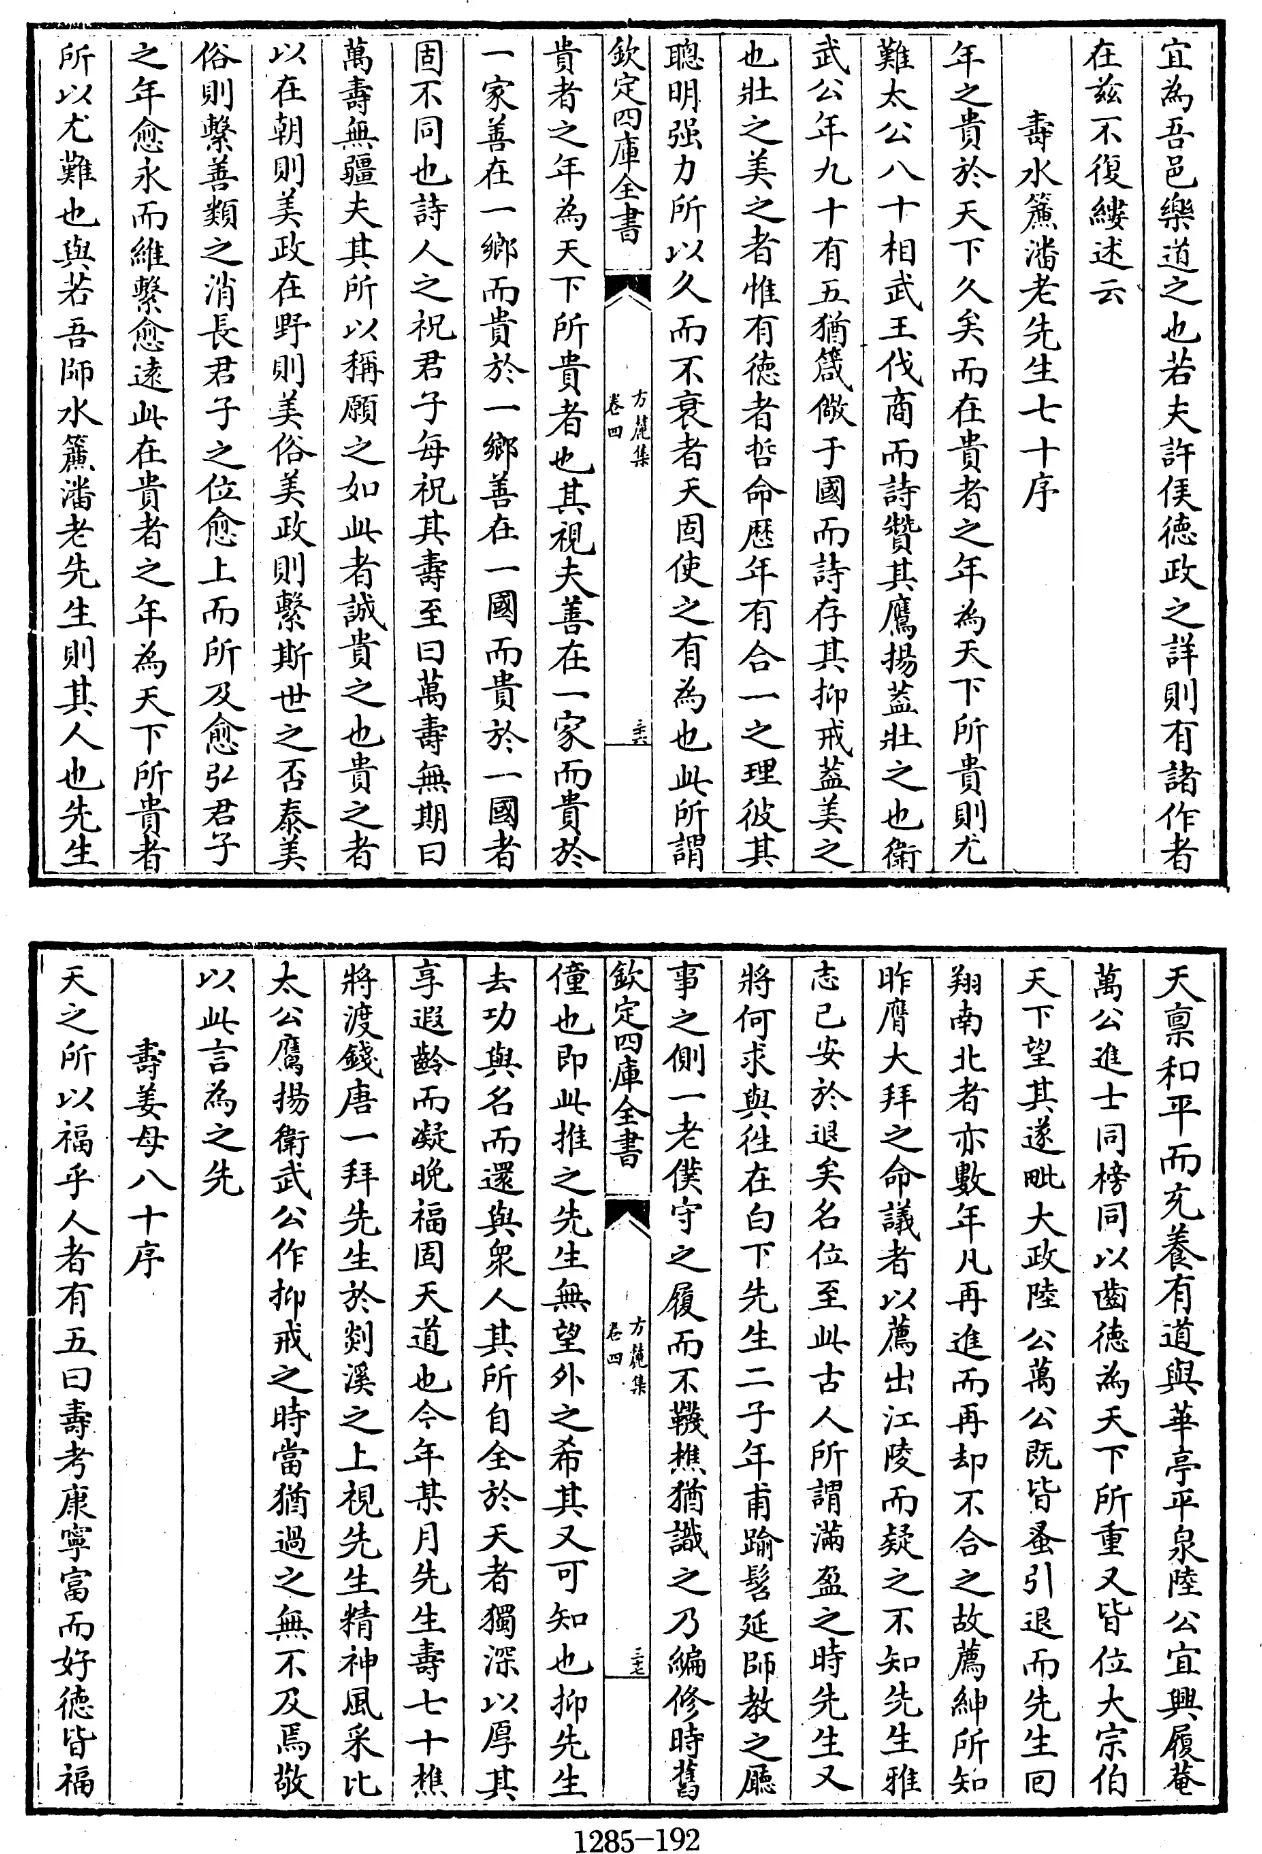 宜為吾邑樂道之也若夫許侯德政之詳則有諸作者
在兹不復縷述云
壽水簾潘老先生七十序
年之貴於天下久矣而在貴者之年為天下所貴則尤
難太公八十相武王伐商而詩贊其鷹揚蓋壯之也衛
武公年九十有五猶箴儆于國而詩存其抑戒蓋美之
也壯之美之者惟有德者哲命歴年有合一之理彼其
聰明强力所以久而不衰者天固使之有為也此所謂
欽定四庫全書
方麓集
卷四
三十六
貴者之年為天下所貴者也其視夫善在一家而貴於
一家善在一鄉而貴於一鄉善在一國而貴於一國者
固不同也詩人之祝君子每祝其壽至曰萬壽無期曰
萬壽無疆夫其所以稱願之如此者誠貴之也貴之者
以在朝則美政在野則美俗美政則繫斯世之否泰美
俗則繫善類之消長君子之位愈上而所及愈弘君子
之年愈永而維繫愈遠此在貴者之年為天下所貴者
所以尤難也與若吾師水簾潘老先生則其人也先生
天禀和平而充養有道與華亭平泉陸公宜興履菴
萬公進士同榜同以齒德為天下所重又皆位大宗伯
天下望其遂毗大政陸公萬公既皆蚤引退而先生回
翔南北者亦數年凡再進而再却不合之故薦紳所知
昨膺大拜之命議者以薦出江陵而疑之不知先生雅
志已安於退矣名位至此古人所謂滿盈之時先生又
將何求與徃在白下先生二子年甫踰髫延師教之廳
事之側一老僕守之履而不襪樵猶識之乃編修時舊
欽定四庫全書
方麓集
卷四
三十七
僮也即此推之先生無望外之希其又可知也抑先生
去功與名而還與衆人其所自全於天者獨深以厚其
享遐齡而凝晚福固天道也今年某月先生壽七十樵
將渡錢唐一拜先生於剡溪之上視先生精神風采比
太公鷹揚衛武公作抑戒之時當猶過之無不及焉敬
以此言為之先
壽姜母八十序
天之所以福乎人者有五曰壽考康寧富而好德皆福
1285-192